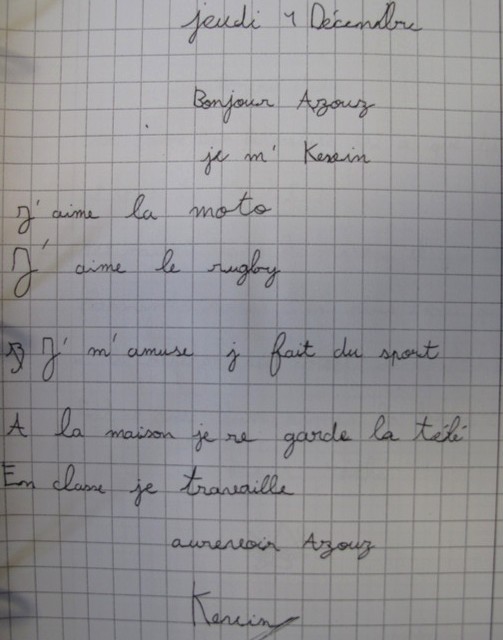 jeudi 1 Décembre
Bonjour Azouz
je m' Kevin
J'aime la moto
J'aime le rugby
J' m'amuse j fait du sport
A la maison je re garde la télé
En classe je travaille
aurevoir Azouz
Kevin